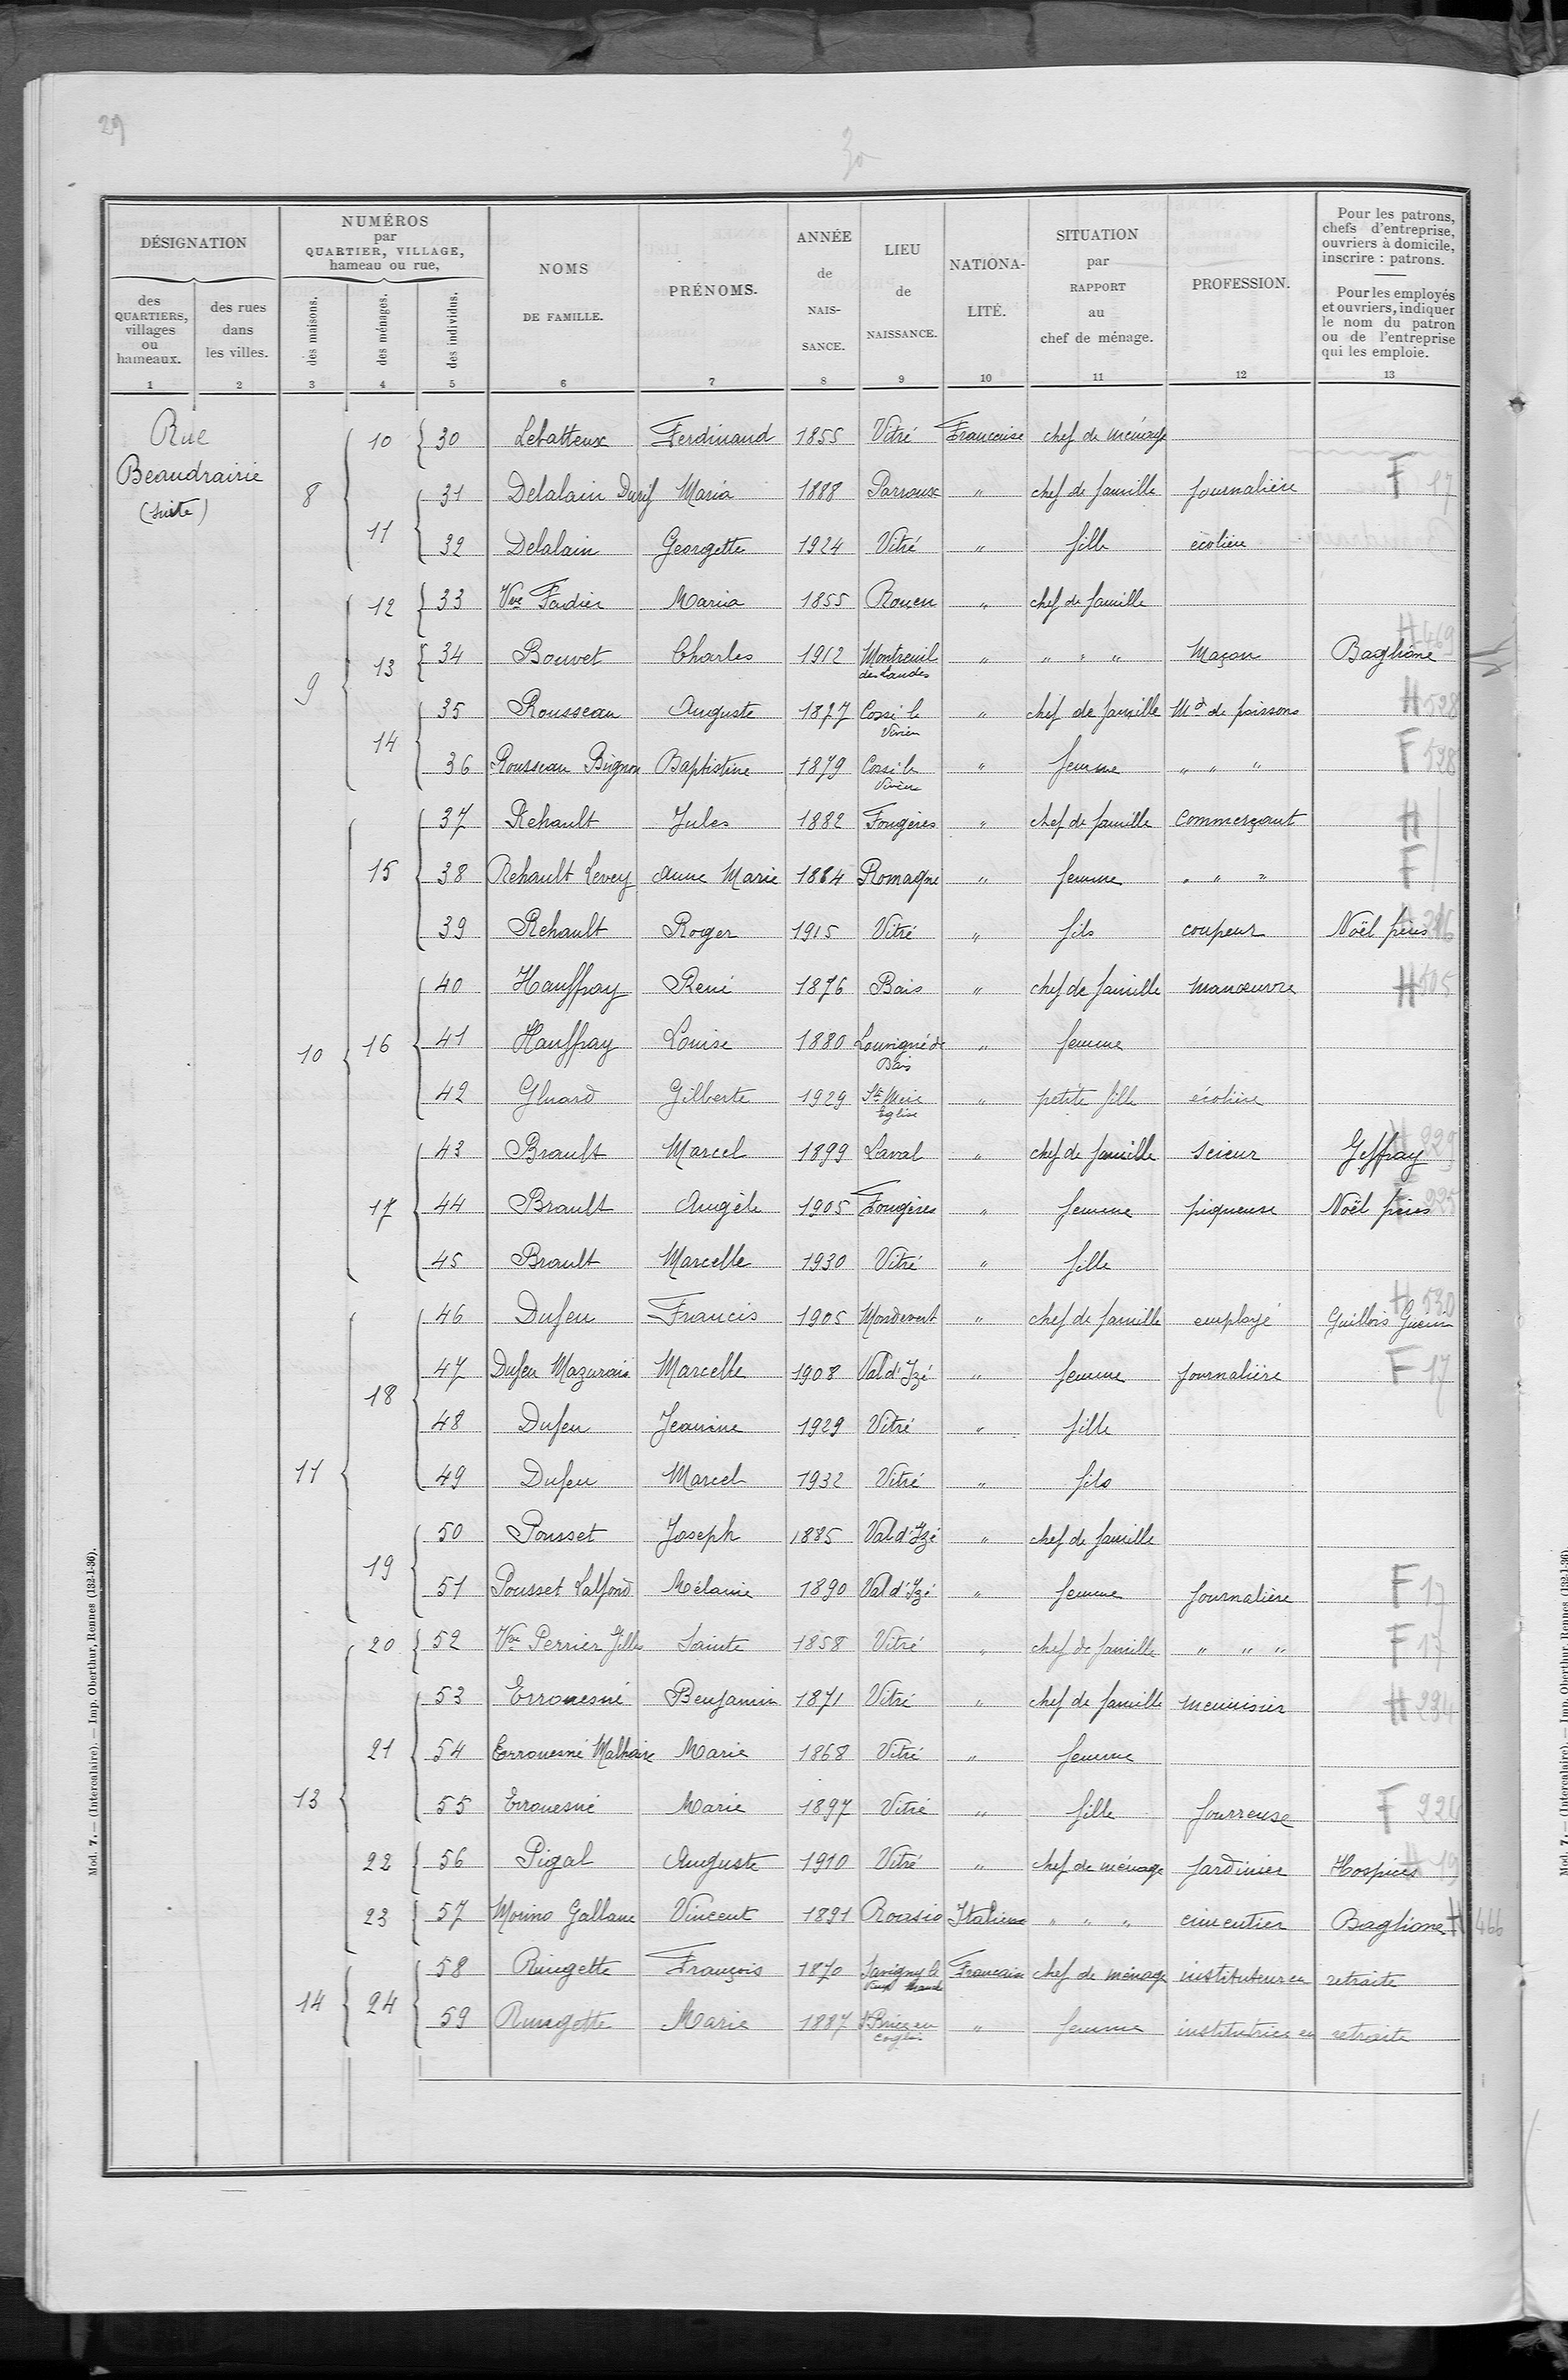 29
30
DÉSIGNATION
des QUARTIERS, villages ou hameaux.
des rues dans les villes.
NUMÉROS par QUARTIER, VILLAGE, hameau ou rue,
des maisons.
des ménages.
des individus.
NOMS DE FAMILLE.
PRÉNOMS.
ANNÉE de NAIS- SANCE.
LIEU de NAISSANCE.
NATIONA- LITÉ.
SITUATION par RAPPORT au chef de ménage.
PROFESSION.
Pour les patrons, chefs d'entreprise, ouvriers à domicile, inscrire : patrons.
Pour les employés et ouvriers, indiquer le nom du patron ou de l'entreprise qui les emploie.
1 2 3 4 5 6 7 8 9 10 11 12 13
Rue Beaudrairie (suite)
10 30 Lebatteux Ferdinand 1855 Vitré Francaise chef de ménage
8 11 31 Delalain Durif Maria 1888 " chef de famille journalière F 17
32 Delalain Georgette 1924 Vitré " fille écolière
12 33 Vve Fadier Maria 1855 Rouen " chef de famille
9 13 34 Bouvet Charles 1912 Montreuil des Landes " " " " Maçon Baglione H 469
14 35 Rousseau Auguste 1877 Cossé le Vivien " chef de famille Md de poissons H 598
36 Rousseau Bignon Baptistine 1879 Cossé le Vivien " femme " " " F 598
10 15 37 Rehault Jules 1882 Fougères " chef de famille commerçant H
38 Rehault Levey Anne Marie 1884 Romagne " femme " " " F
39 Rehault Roger 1915 Vitré " fils coupeur Noël frères
16 40 Hauffray René 1876 Bais " chef de famille manœuvre H 505
41 Hauffray Louise 1880 Louvigné de Bais " femme
42 Gluard Gilberte 1929 Ste Mère Eglise " petite fille écolière
17 43 Brault Marcel 1899 Laval " chef de famille scieur Geffray H 229
44 Brault Angèle 1905 Fougères " femme piqueuse Noël frères 225
45 Brault Marcelle 1930 Vitré " fille
11 18 46 Dufeu Francis 1905 Mondevert " chef de famille employé Guillois Guerin H 530
47 Dufeu Mazurais Marcelle 1908 Val d'Izé " femme journalière F 17
48 Dufeu Jeannine 1929 Vitré " fille
49 Dufeu Marcel 1932 Vitré " fils
19 50 Pousset Joseph 1885 Val d'Izé " chef de famille
51 Pousset Lalfond Mélanie 1890 Val d'Izé " femme journalière F 17
13 20 52 Vve Perrier Gilles Sainte 1858 Vitré " chef de famille " " " F 17
21 53 Erronesné Benjamin 1871 Vitré " chef de famille menuisier H 234
54 Erronesné Malhaire Marie 1868 Vitré " femme
55 Erronesné Marie 1897 Vitré " fille fourreuse F 224
22 56 Pigal Auguste 1910 Vitré " chef de ménage jardinier Hospices H 19
23 57 Morino Gallane Vincent 1891 Roasio Italienne " " " cimentier Baglione H 466
14 24 58 Ringette François 1870 Savigny le Vieux Manche Francaise chef de ménage instituteur en retraite
59 Ringette Marie 1887 St Brice en Coglès " femme institutrice en retraite
Mod. 7. — (Intercalaire). — Imp. Oberthur, Rennes (132-1-36).
Mod. 7. — (Intercalaire). — Imp. Oberthur, Rennes (132-1-36)